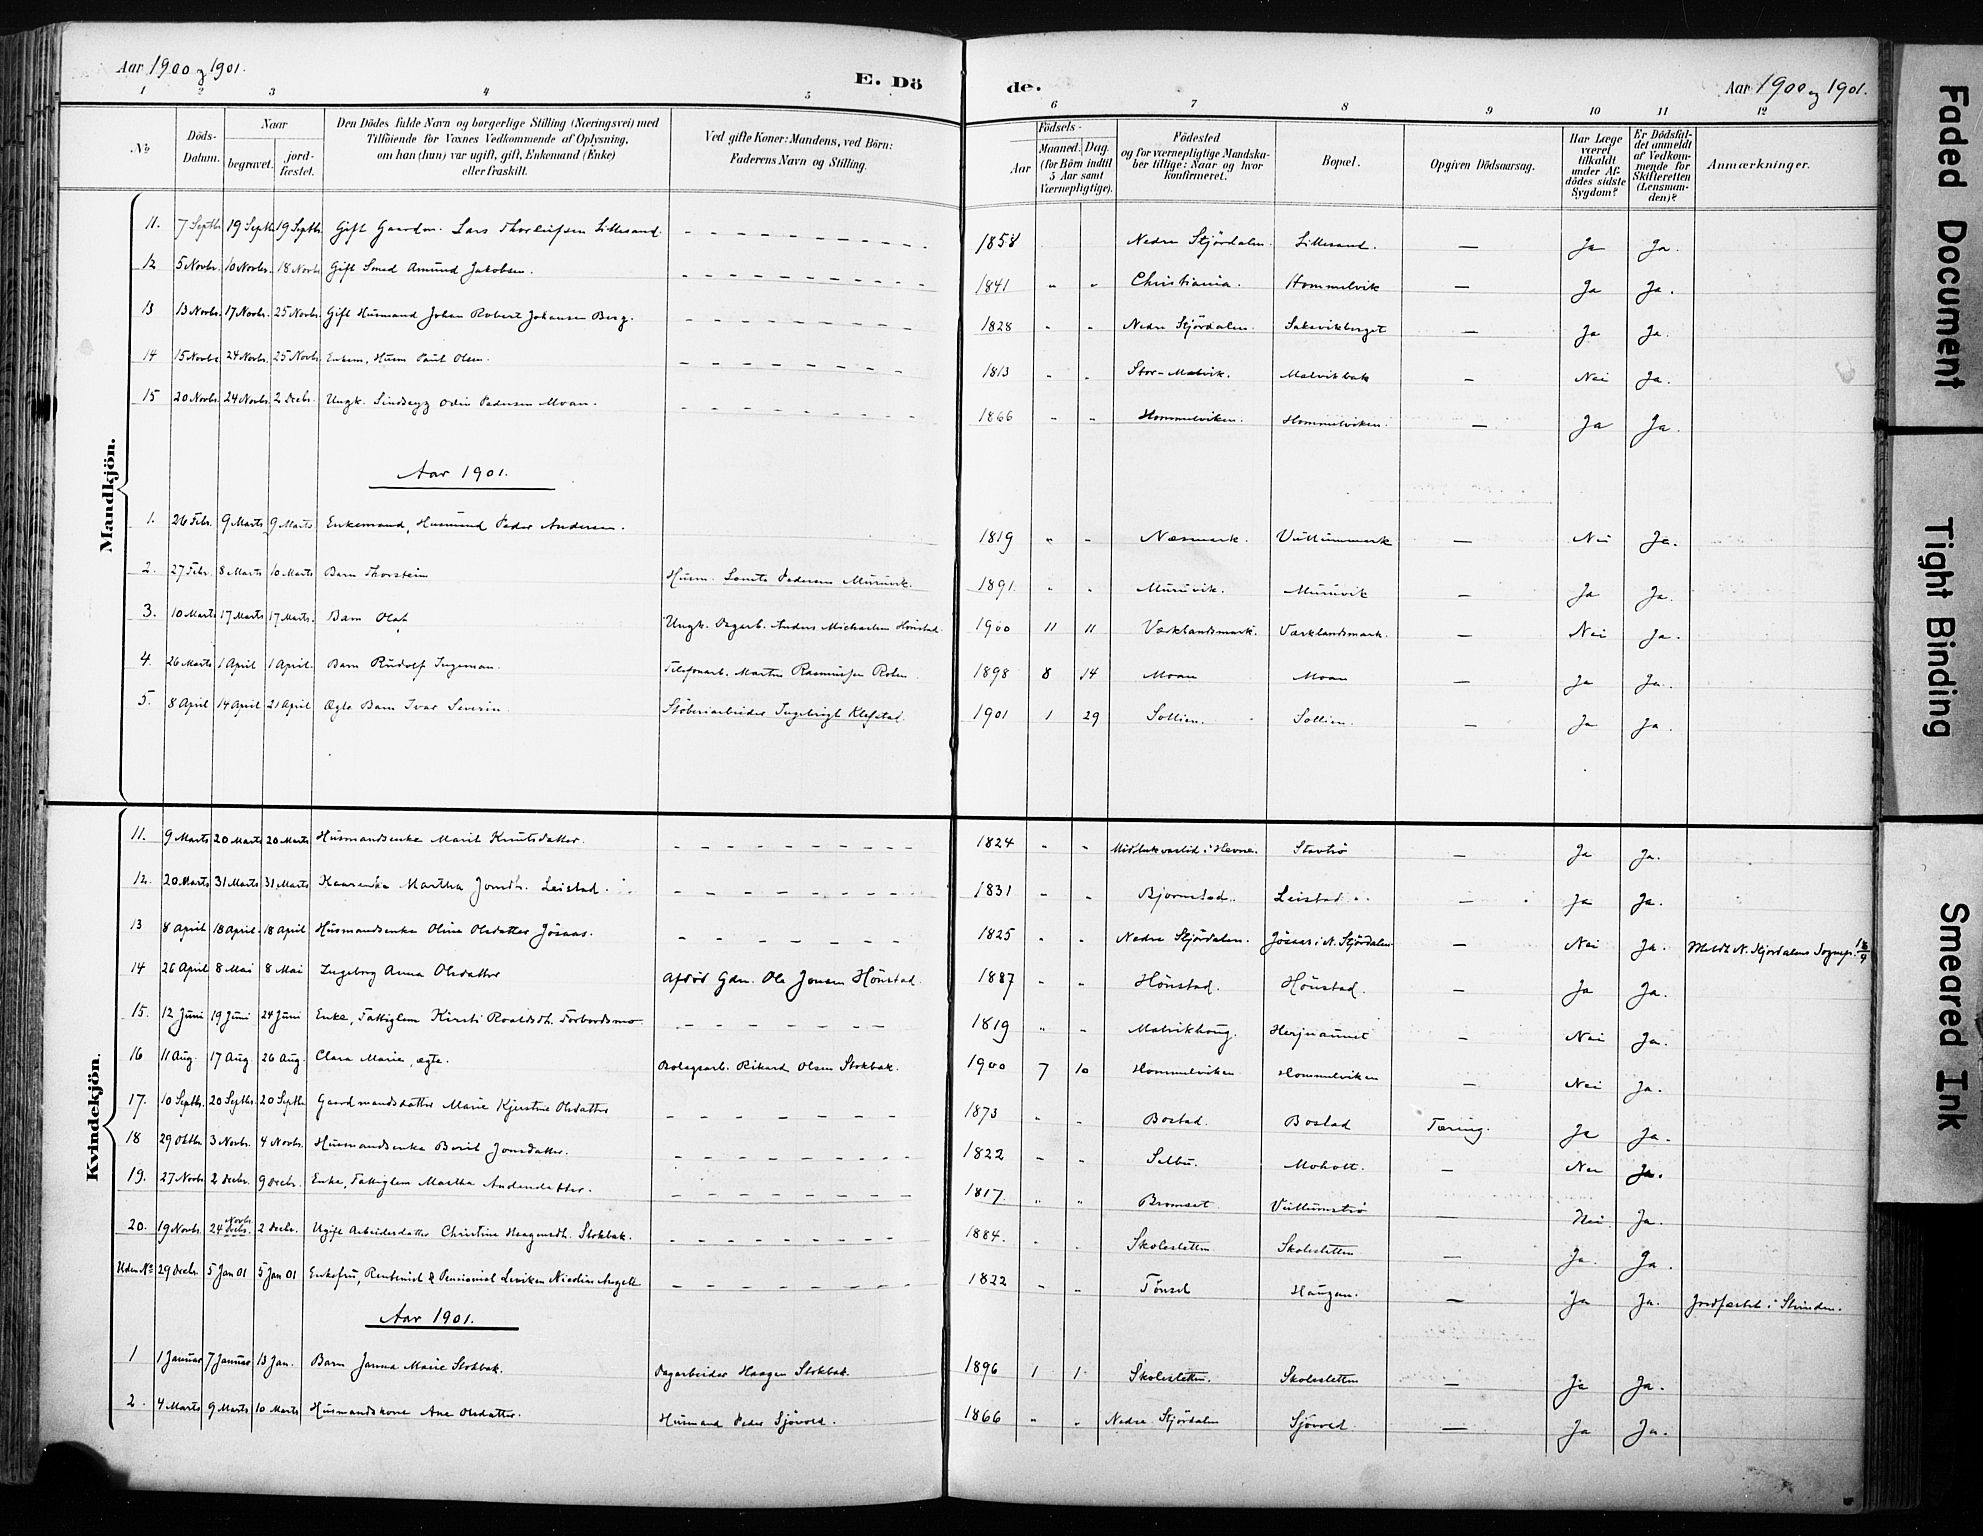 Aar 1900 og 1901.
E. Dö
de.
Aar 1900 og 1901.
1 2 3 4 5 6 7 8 9 10 11 12
No
Döds-Datum.
Naar
begravet.
jord-fæstet.
Den Dödes fulde Navn og borgerlige Stilling (Næringsvei) med
Tilföiende for Voxnes Vedkommende af Oplysning,
om han (hun) var ugift, gift, Enkemand (Enke)
eller fraskilt.
Ved gifte Koner: Mandens, ved Börn:
Faderens Navn og Stilling.
Födsels-
Aar
Maaned. Dag.
(for Börn indtil
5 Aar samt
Værnepligtige).
Födested
og for værnepligtige Mandska-
ber tillige: Naar og hvor
konfirmeret.
Bopæl.
Opgiven Dödsaarsag.
Har Læge
været
tilkaldt
under Af-
dödes sidste
Sygdom?
Er Dödsfal-
det anmeldt
af Vedkom-
mende for
Skifteretten
(Lensman-
den)?
Anmærkninger.
Mandkjön.
11. 7 Septbr 19 Septbr 19 Septbr Gift Gaardm. Lars Thorleifsen Lillesand 1858 Nedre Stjördalen Lillesand. — Ja Ja.
12 5 Novbr. 10 Novbr. 18 Novbr Gift Smed Amund Jakobsen. 1841 " " Christiania. Hommelvik — Ja Ja.
13 13 Novbr. 17 Novbr. 25 Novbr. Gift Husmand Johan Robert Johansen Berg. 1828 " " Nedre Stjördalen. Saksvikberget — Ja Ja.
14 15 Novbr 24 Novbr. 25 Novbr. Enkem. Husm Paul Olsen. 1813 " " Stor-Malvik. Malvikbak — Nei Ja.
15 20 Novbr. 24 Novbr. 2 Decbr. Ungk. Sindssyg Odin Pedersen Moan. 1866 " " Hommelviken. Hommelviken. — Ja Ja.
Aar 1901.
1. 26 Febr. 9 Marts 9 Marts Enkemand, Husmand Peder Andersen. 1819 " " Næsmark. Vullummark — Nei Ja.
2. 27 Febr. 8 Marts 10 Marts Barn Thorstein Husm. Lomte Pedersen Muruvik. 1891. " " Muruvik. Muruvik — Ja Ja.
3. 10 Marts 17 Marts 17 Marts. Barn Olaf Ungk. Dagarb. Anders Michaelsen Hönstad 1900 11 11 Værklandsmark. Værklandsmark. — Nei Ja.
4. 26 Marts 1 April 1 April. Barn Rudolf Ingeman. Telefonarb. Martin Rasmussen Rolen. 1898 8 14 Moan Moan — Ja Ja.
5. 8 April 14 April 21 April Ægte Barn Ivar Severin. Stöberiarbeider Ingebrigt Klefstad. 1901 1 29 Sollien. Sollien. — Ja Ja.
Kvindekjön.
11. 9 Marts 20 Marts 20 Marts Husmandsenke Marit Knutsdatter. 1824 " " i Hevne. Stavtrö — Ja Ja.
12. 20 Marts 31 Marts 31 Marts Kaarenke Martha Jonsdtr. Leistad. 1831 " " Bjørnstad. Leistad. — Ja Ja.
13 8 April 18 April. 18 April Husmandsenke Oline Olsdatter Jösaas. 1825 " " Nedre Stjördalen. Jössas i N. Stjördalen — Nei Ja. Meldt N. Stjördalens Sognepr. 18/4
14 26 April 8 Mai 8 Mai Ingeborg Anna Olsdatter Afdöd Gdm. Ole Jonsen Hönstad. 1887 " " Hönstad. Hönstad. — Ja Ja.
15. 12 Juni 19 Juni 24 Juni Enke, Fattiglem Kirsti Roaldsdtr. Forbordsmo 1819 " " Malvikhoug. Herjuaunet — Nei Ja.
16 11 Aug. 17 Aug 26 Aug. Clara Marie, ægte. Bolagsarb. Rikard Olsen Stokbak. 1900 7 10 Hommelviken Hommelviken — Nei Ja.
17. 10 Septbr. 20 Septbr. 20 Septbr Gaardmandsdatter Marie Kjerstine Olsdatter 1873 " " Bostad. Bostad Tæring. Ja Ja.
18 29 Oktbr 3 Novbr. 4 Novbr. Husmandsenke Beret Jonsdatter. 1822 " " Selbu. Moholt. — Nei Ja.
19. 27 Novbr 2 Decbr. 9 Decbr. Enke, Fattiglem Martha Andersdatter. 1817. " " Bromset. Vullumströ — Nei Ja.
20. 19 Novbr. 24 Novbr. Decbr. 2 Decbr. Ugift Arbeidersdatter Christine Haagensdtr. Stokbak. 1884. " " Skolesletten Skolesletten — Ja. Ja.
Uden No 29 Decbr. 5 Jan 01 5 Jan 01 Enkefru, Rentenist & Pensionist Leviken Nicoline Angell 1822 " " Tönset Haugan. — Ja Ja. Jordfæstet i Strinden.
Aar 1901.
1 1 Januar 7 Januar 13 Jan. Barn Janna Marie Stokbak. Dagarbeider Haagen Stokbak. 1896 1 1. Skolesletten. Skolesletten — Ja Ja.
2. 4 Marts 9 Marts 10 Marts Husmandskone Ane Olsdatter. Husmand Peder Sjövold. 1866 " " Nedre Stjördalen Sjövold — Ja Ja.
Faded Document
Tight Binding
Smeared Ink